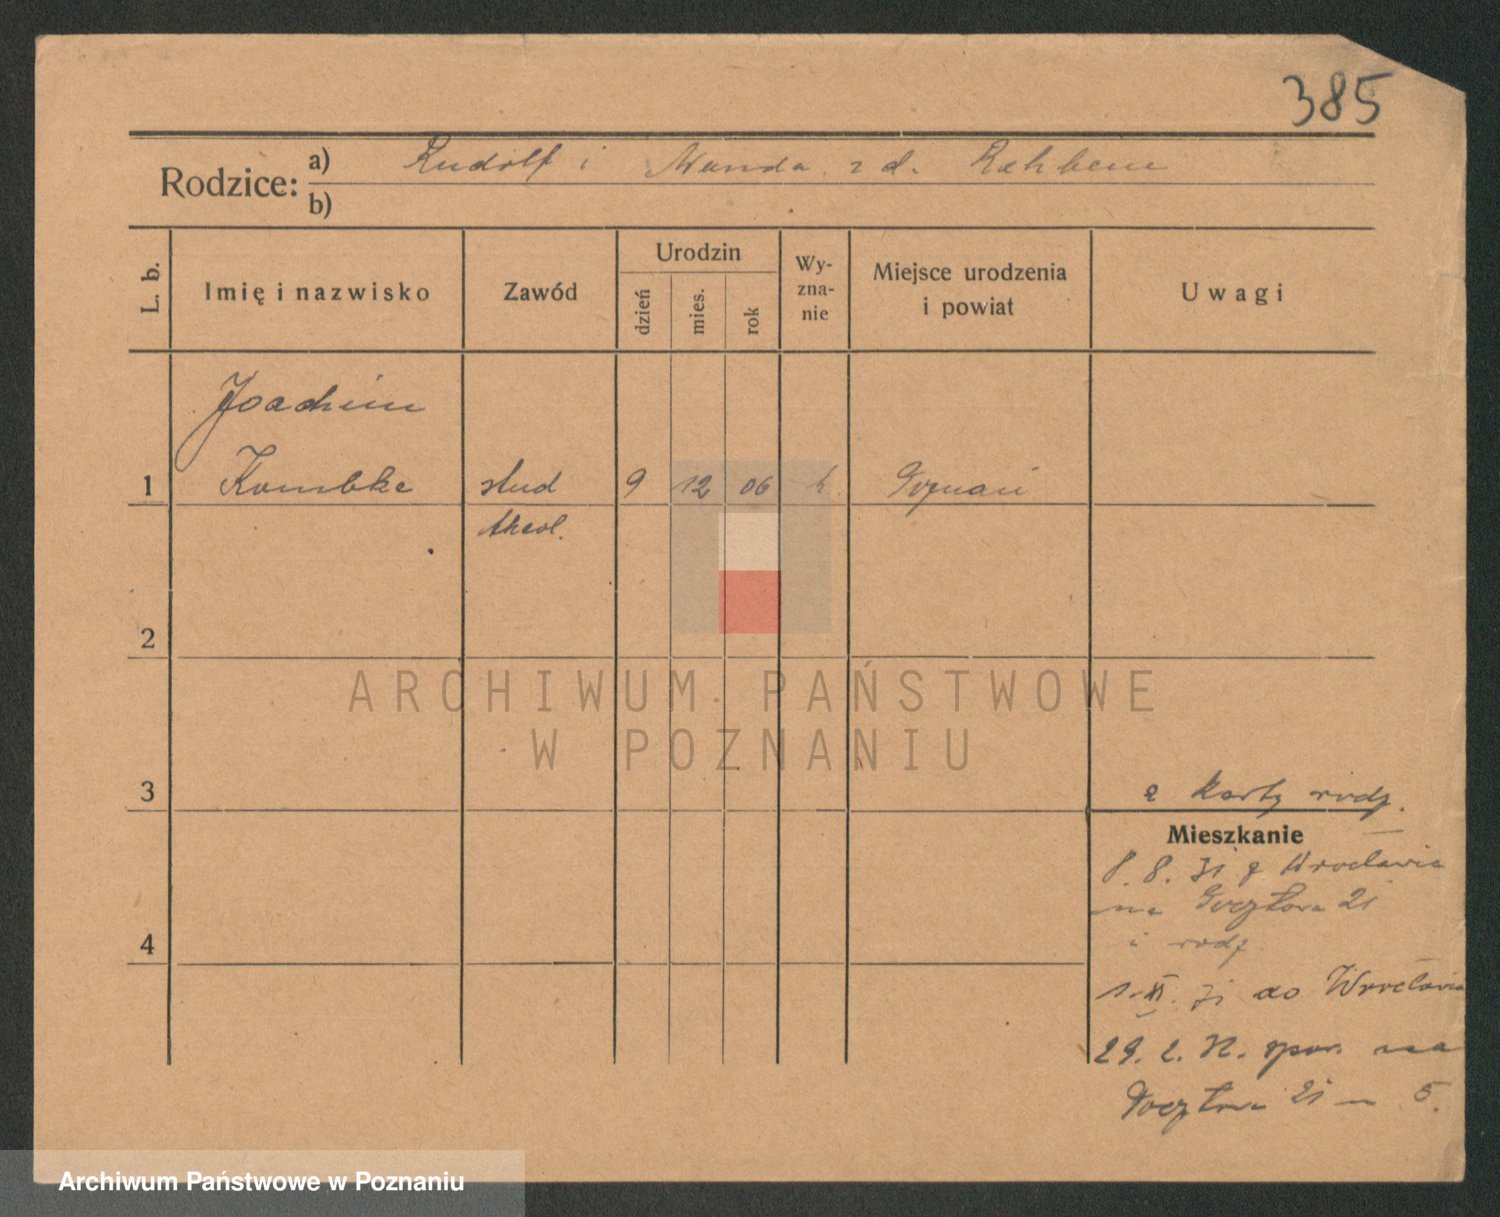 385
Rodzice: a) Rudolf i Wanda zd. Rehbein
b)
L. b.
Imię i nazwisko
Zawód
Urodzin
dzień
mies.
rok
Wy-
zna-
nie
Miejsce urodzenia
i powiat
Uwagi
Joachim
1 Kombke stud 9 12 06 Poznań
theol.
2
3
4
z karty rodz.
Mieszkanie
8. 8. 31 z Wrocławia
na Pocztowa 21
i rodz
1. XI. 31 do Wrocławia
29. 2. 32. spow. na
Pocztowa 21 m 5.
ARCHIWUM PAŃSTWOWE
W POZNANIU
Archiwum Państwowe w Poznaniu